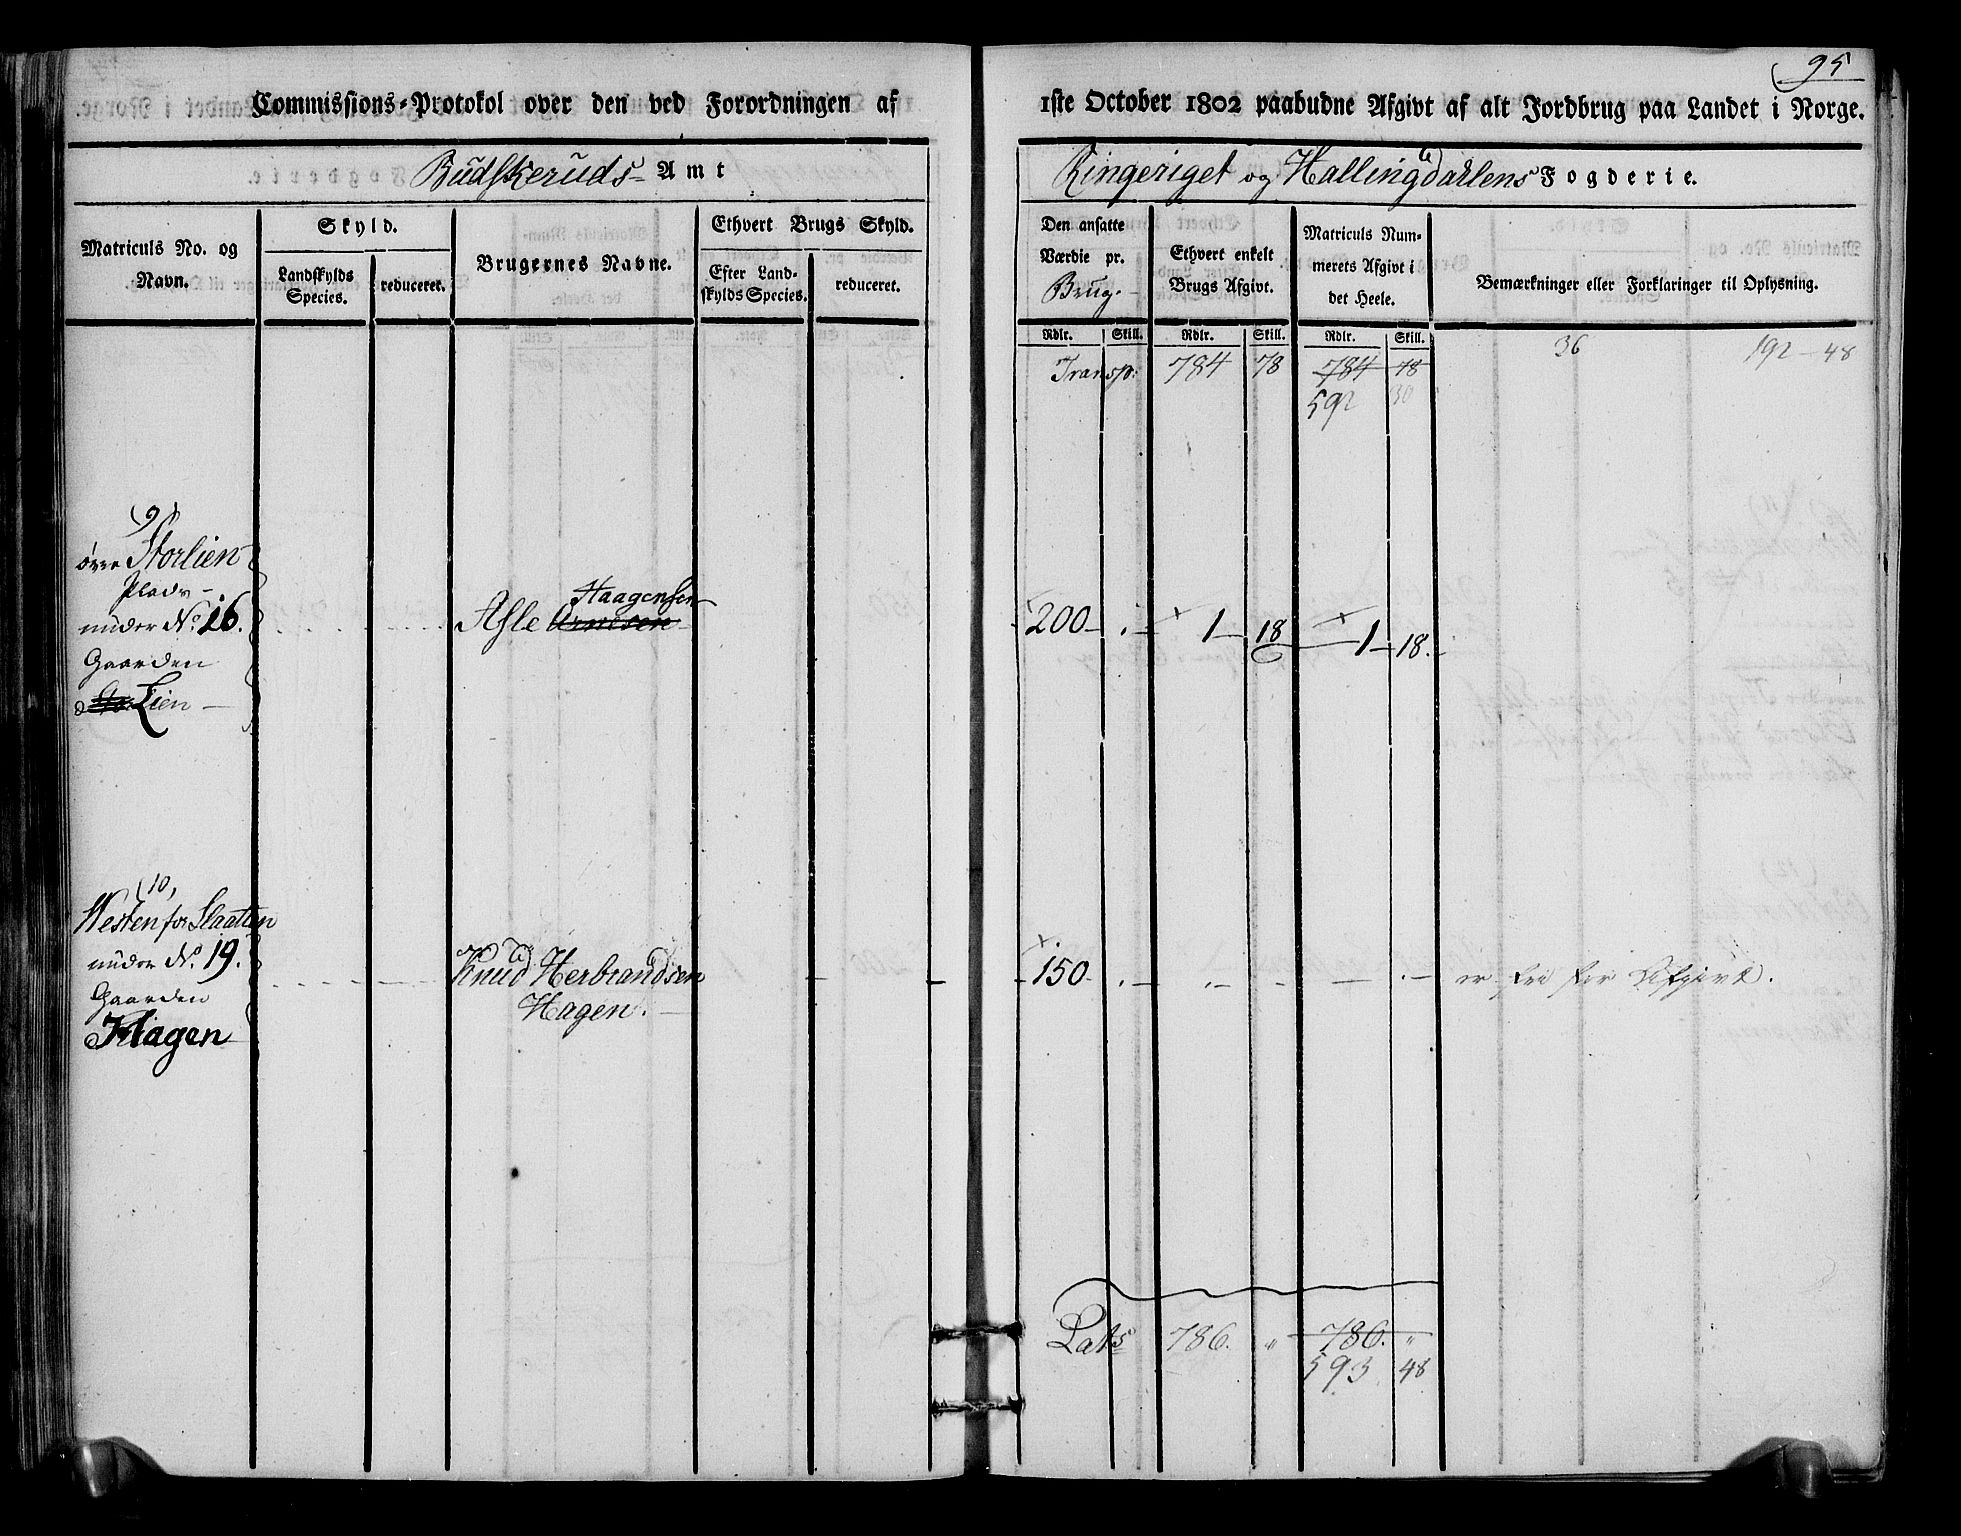 95
Commissions-Protokol over den ved Forordningen af 1ste October 1802 paabudne Afgivt af alt Jordbrug paa Landet i Norge.
Budskeruds Amt
Ringeriget og Hallingdahlens Fogderie.
Matriculs No. og Navn.
Skyld.
Landskylds Species.
reduceret.
Brugernes Navne.
Ethvert Brugs Skyld.
Efter Landskylds Species.
reduceret.
Den ansatte Værdie pr. Brug.
Ethvert enkelt Brugs Afgivt.
Matriculs Nummerets Afgivt i det Heele.
Bemærkninger eller Forklaringer til Oplysning.
Rdlr. Skill. Rdlr. Skill. Rdlr. Skill.
36 192 - 48
Transp: 784 78 784 78
592 30
9
övre Storlien
Plads
under No. 16.
Gaarden
Lien
Asle Arnesen Haagensen
200 - . - 1 - 18 - 1 - 18.
10,
Westenfor Slaatten
under No. 19.
Gaarden
Hagen
Knud Herbrandsen
Hagen.
150 . - . - - . - er fri for Afgivt.
Lats 786. " 786. "
593 48